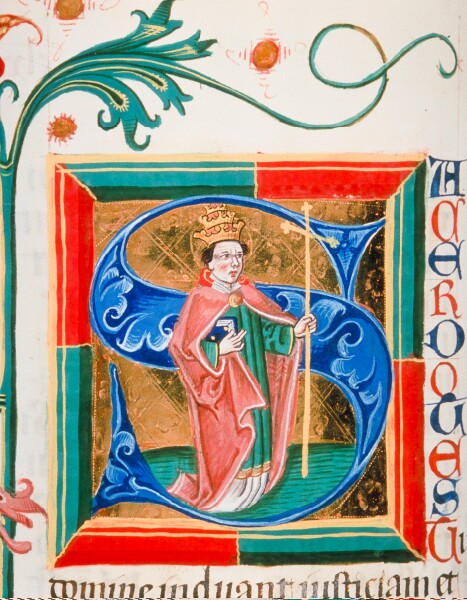 SACERDOTES Tu
domine induant iusticiam et